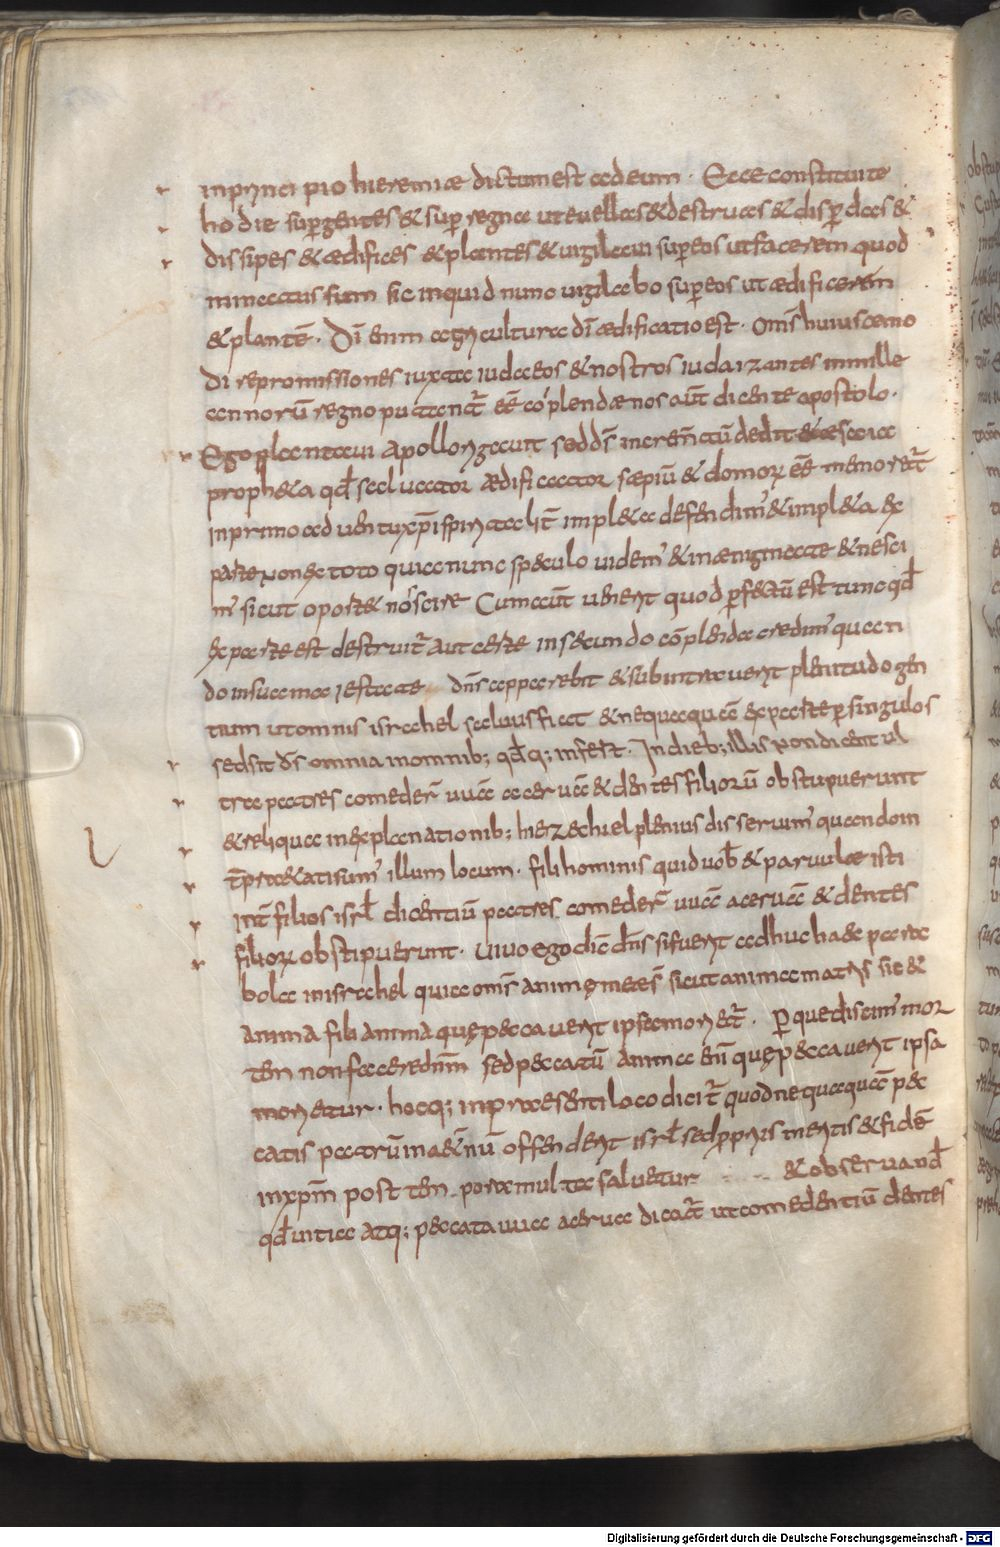 inprinci pio hieremiæ dictum est ad eum · Ecce constitui te
ho die sup̄ gentes & sup̄ regna ut euellas & destruas & disp̄das &
dissipes & ædifices & plantes & uigilaui sup̄ eos ut facerem quod
minatus sum sic inquid nunc uigilabo sup̄ eos ut ædificerem
& plantē · Dī enim agricultura dī ædificatio est · om̄s huiuscemo
di repromissiones iuxta iudæos & nostros iudaizantes in mille
annorū regno putant̄ eē cōplendæ nos aūt dicente apostolo ·
Ego plantaui apollo rigauit sed d̄s incrementū dedit
proph&a qđ saluator ædificator sæpiū & domoꝝ eē memorat̄
in primo aduentu xp̄i impl&a defendim' & impl&a ex
parte non ex toto quia nunc speculo uidem' & in ænigmate & nesci
m' sicut oport& nos scire Cum aūt uenerit quod p̄fectū est tunc qđ
ex parte est destruit̄ aut certe in secundo cōplenda credim' quan
do in sua maiestate dn̄s apparebit & subintrauerit plenitudo gen
tium ut omnis israhel saluus fiat & nequaquā ex parte p̄ singulos
sed sit d̄s omnia in omnib; qđq; infert · In dieb; illis non dicent ul
tra patres comeder̄ uuā acerbā & dentes filiorū obstupuerunt
& reliqua in explanationib; hiezechiel plenius disseruim' quandoin
illum locum · fili hominis quid uob̄ & parabolæ isti
int̄ filios isrł dicentiū patres comeder̄ uuā aceruā & dentes
filioꝝ obstipuerunt · Uiuo ego dic̄ dn̄s si fuerit adhuc haec para
bola in israhel quia om̄s animę meę s̄ sicut anima patris sic &
anima fili anima quę peccauerit ipsa moriet̄ · p̄ que discim' mor
tem non facere dn̄m sed peccatū animæ enī quę peccauerit ipsa
morietur · hocq; in præsenti loco dicit̄ quod nequaquā pec
catis patrū in æt̄nū offenderit isrł sed p̄priis meritis & fidē
in xp̄m post tem pora multa saluetur & obseruand̄
qđ uitia atq; peccata uua acerua dicat̄ ut comedentiū dentes